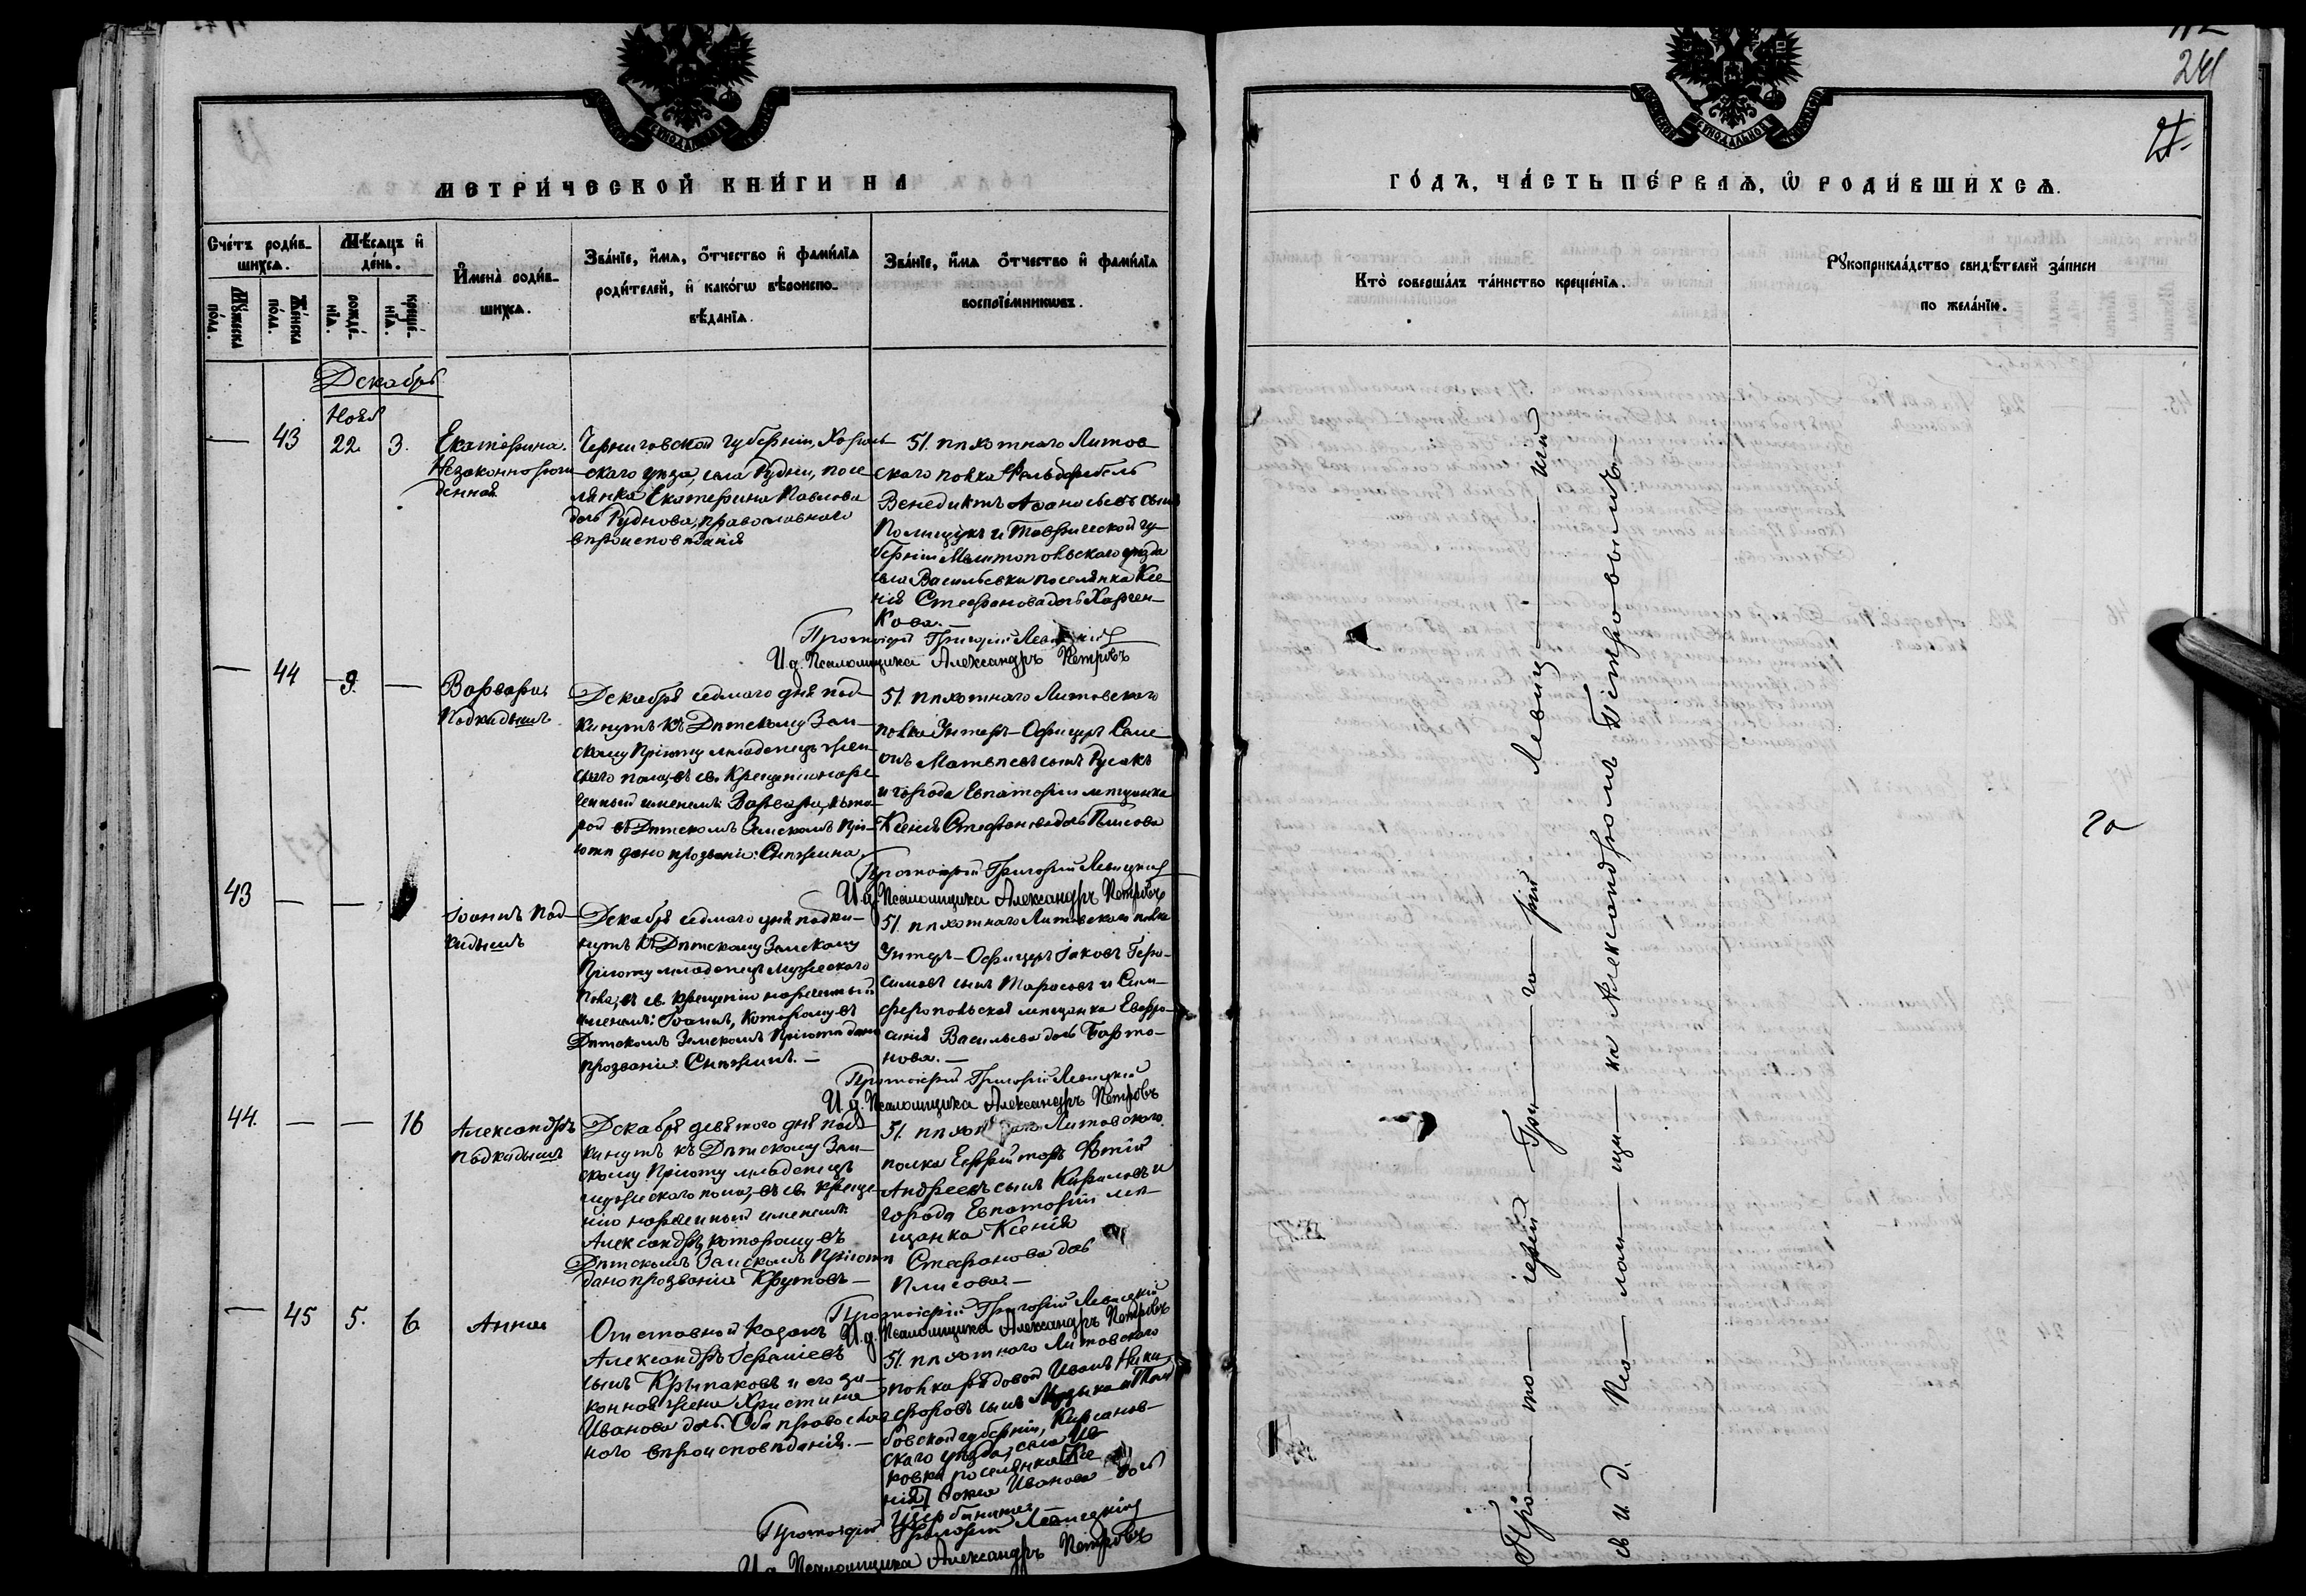 241
МЕТРИ́ЧЕСКОЙ КНИ́ГИ НА
ГО́ДЪ, ЧА́СТЬ ПЕ́РВАѦ, Ѽ РОДИ́ВШИХСѦ.
Сче́тъ роди́в-
шихсѧ.
Мꙋ́жеска
по́ла.
Же́нска
по́ла.
Мѣ́сѧцъ и҆
де́нь.
рожде́-
нїѧ.
креще́-
нїѧ.
И҆мена̀ роди́в-
шихсѧ.
Зва́нїе, и҆́мѧ, ѻ҆́тчество и҆ фами́лїѧ
роди́телей, и҆ како́гѡ вѣроиспо-
вѣ́данїѧ.
Зва́нїе, и҆́мѧ ѻ҆́тчество и҆ фами́лїѧ
воспрїе́мникѡвъ.
Кто̀ соверша́лъ та́инство креще́нїѧ.
Рꙋкоприкла́дство свидѣ́телей за́писи
по жела́нїю.
Декабрь
Нояб
— 43 22. 3.
Екатерина.
Незаконнорож
денная
Черниговской губерніи, Хороль
скаго уѣзда, села Рудни, посе
лянка Екатерина Павлова
дочь Руднова, православнаго
вѣроисповѣданія
51. пѣхотнаго Литов
скаго полка Фельдфебель
Венедиктъ Аѳанасьевъ сынъ
Полищукъ и Таврической гу-
берніи Мелитопольскаго уѣзда
села Васильевки поселянка Ксе
нія Стефанова дочь Харчен-
кова.—
Протоіерей Григорій Левицкій
И. д. Псаломщика Александръ Петровъ
— 44 9. —
Варвара
Подкидышъ
Декабря седмаго дня под-
кинутъ къ Дѣтскому Зем-
скому Пріюту младенецъ жен
скаго пола, въ св. Крещеніи наре
ченный именемъ: Варвара, кото-
рой въ Дѣтскомъ Земскомъ Прі-
ютѣ дано прозваніе: Снѣжина.
51. пѣхотнаго Литовскаго
полка Унтеръ-Офицеръ Семе
онъ Матвѣевъ сынъ Русакъ
и города Евпаторіи мѣщанка
Ксенія Стефанова дочь Плисова
Протоіерей Григорій Левицкій
И. д. Псаломщика Александръ Петровъ
43 — —
Іоаннъ Под-
кидышъ
Декабря седмаго дня подки-
нутъ къ Дѣтскому Земскому
Пріюту младенецъ мужескаго
пола, въ св. крещеніи нареченный
именемъ: Іоаннъ, которому въ
Дѣтскомъ Земскомъ Пріютѣ дано
прозваніе: Снѣжинъ.—
51. пѣхотнаго Литовскаго полка
Унтеръ-Офицеръ Іаковъ Гера-
симовъ сынъ Тарасовъ и Сим-
феропольская мѣщанка Евфро-
синія Васильева дочь Барто-
нова.—
Протоіерей Григорій Левицкій
И. д. Псаломщика Александръ Петровъ
44. — — 16
Александръ
Подкидышъ
Декабря девятого дня под-
кинутъ къ Дѣтскому Зем-
скому Пріюту младенецъ
мужескаго пола, въ св. креще-
ніи нареченный именемъ
Александръ, которому въ
Дѣтскомъ Земскомъ Пріютѣ
дано прозваніе Крутовъ—
51. пѣхотнаго Литовскаго
полка Ефрейторъ
Андреевъ сынъ Кириловъ и
города Евпаторіи мѣ-
щанка Ксенія
Стефанова дочь
Плисова.—
Протоіерей Григорій Левицкій
И. д. Псаломщика Александръ Петровъ
— 45 5. 6
Анна
Отставной Козакъ
Александръ
сынъ Крыпаковъ и его за-
конная жена Христина
Иванова дочь. Оба православ-
наго вѣроисповѣданія.—
51. пѣхотнаго Литовскаго
полка рядовой Иванъ Ники
форовъ сынъ Музыка и Там
бовской губерніи, Кирсанов-
скаго уѣзда, села
поселянка Ксе
нія Иванова дочь
Щербинина—
Протоіерей Григорій Левицкій
И. д. Псаломщика Александръ Петровъ
Про— то— іерей Гри— го— рій Левиц— кій
съ и. д. Пса— лом— щи— ка Александромъ Петровымъ—